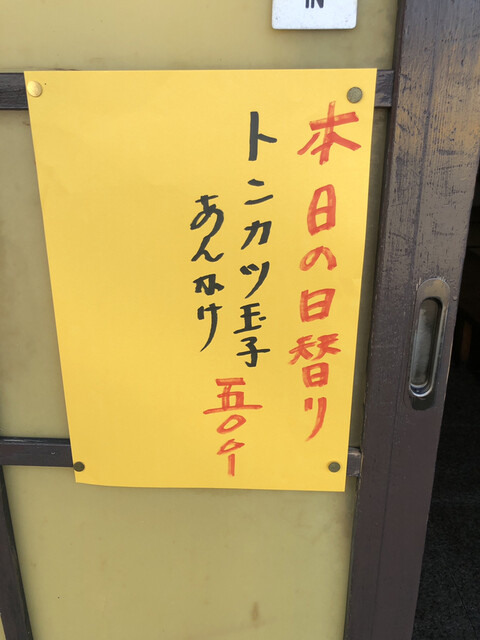 IN
本日の日替り
トンカツ玉子
あんかけ
五〇〇